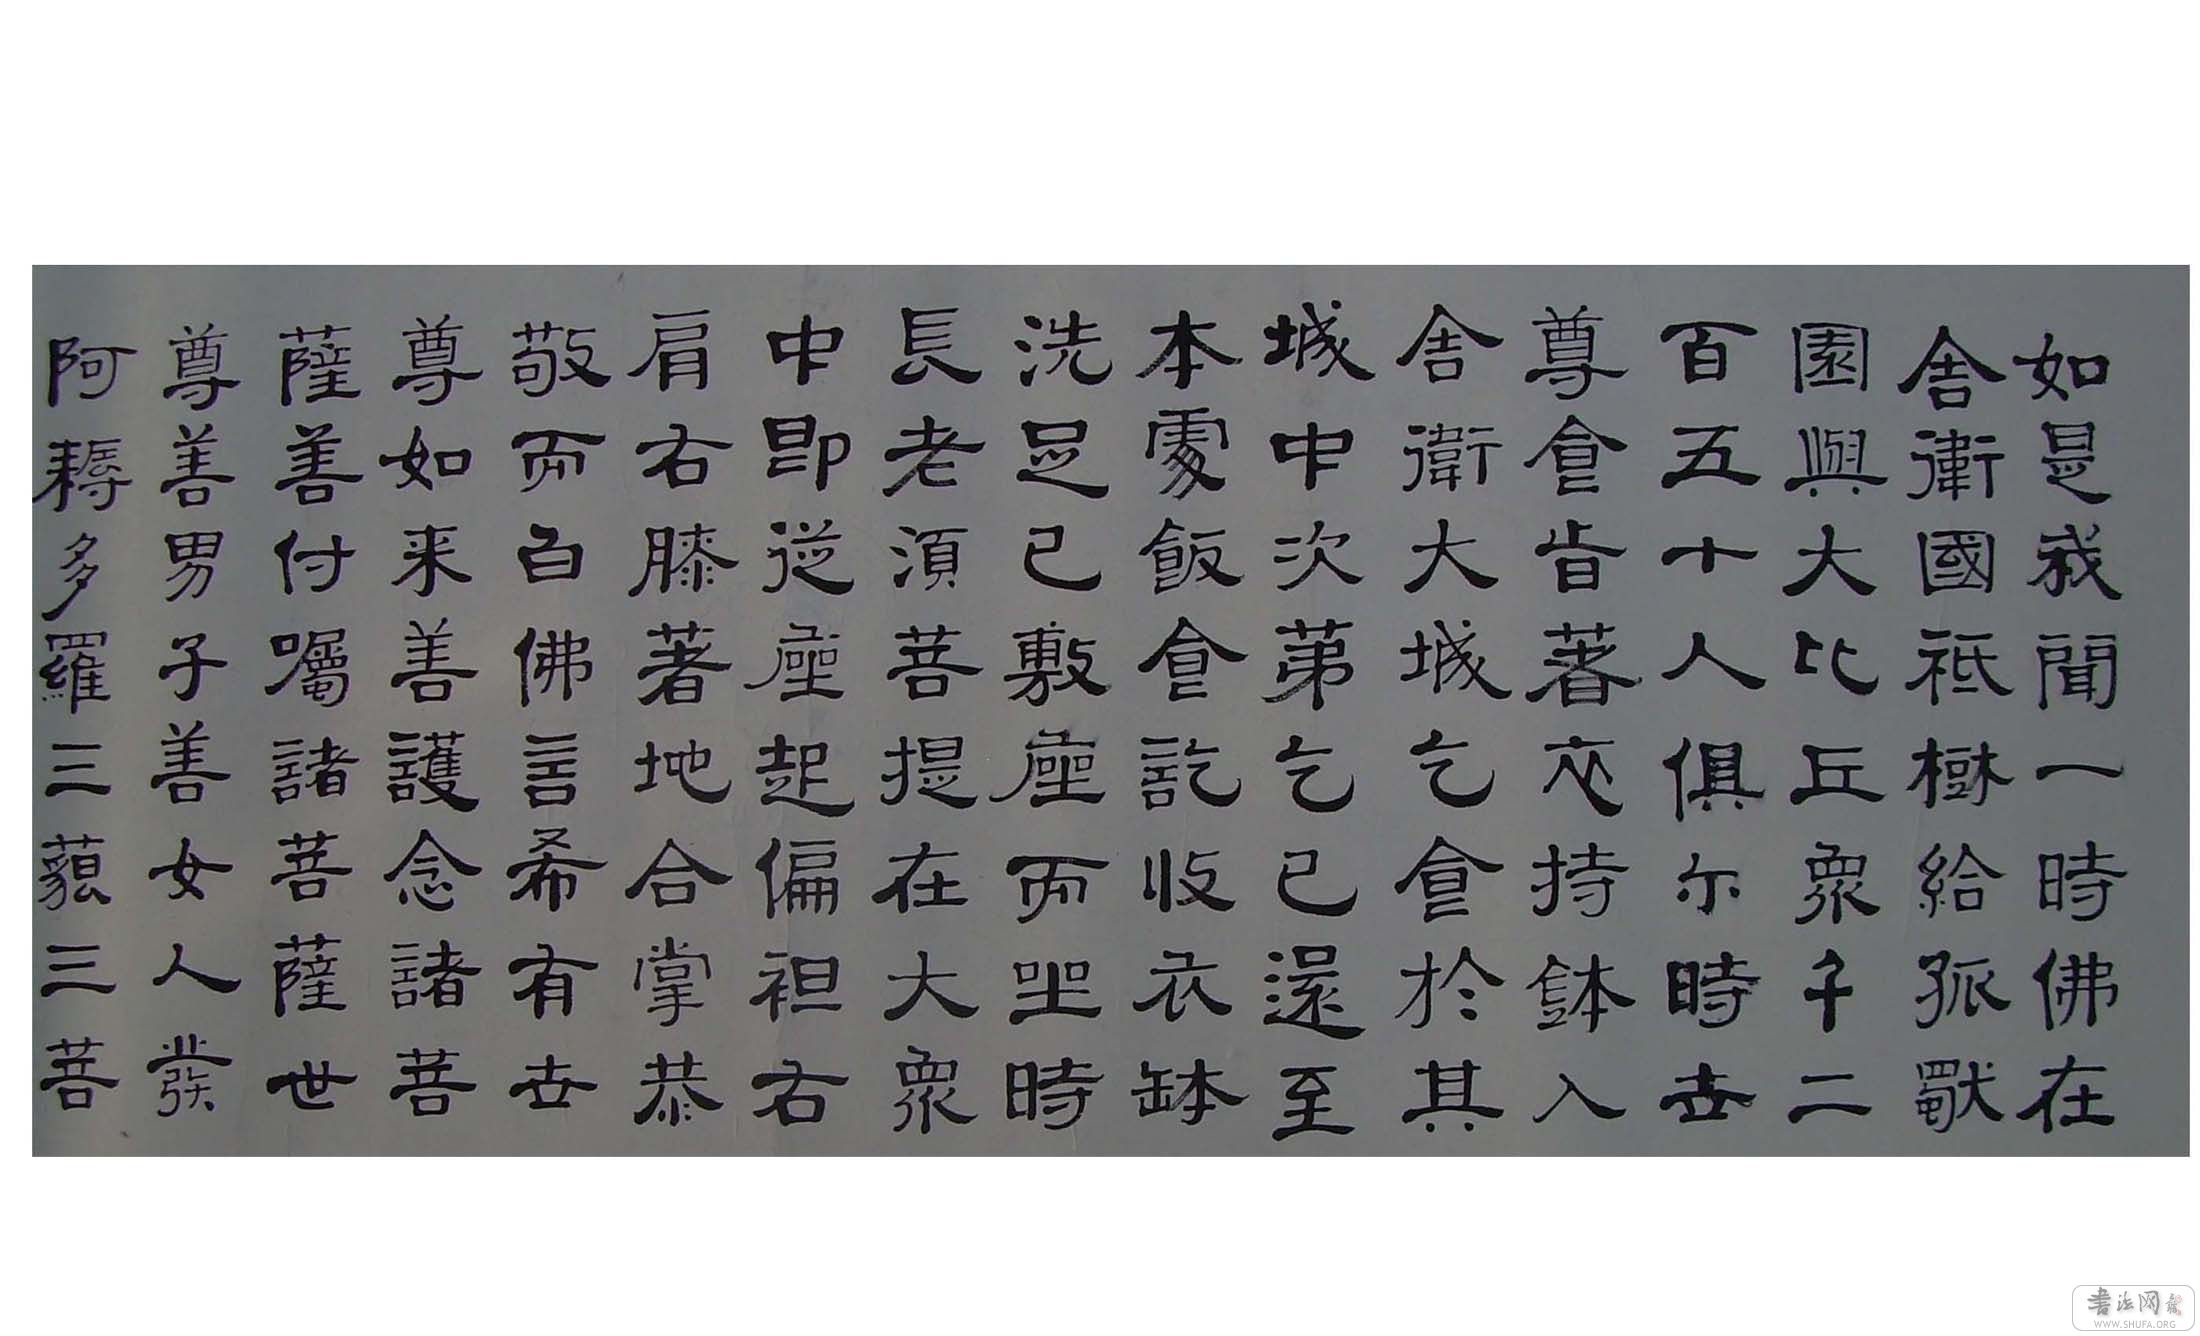 如是我聞一時佛在
舍衛國祗樹給孤獨
園與大比丘眾千二
百五十人俱尔時世
尊食時著衣持鉢入
舍衛大城乞食於其
城中次第乞已還至
本處飯食訖收衣缽
洗足已敷座而坐時
長老須菩提在大眾
中即從座起偏袒右
肩右膝著地合掌恭
敬而白佛言希有世
尊如来善護念諸菩
薩善付囑諸菩薩世
尊善男子善女人發
阿耨多羅三藐三菩
书法网
WWW.SHUFA.ORG